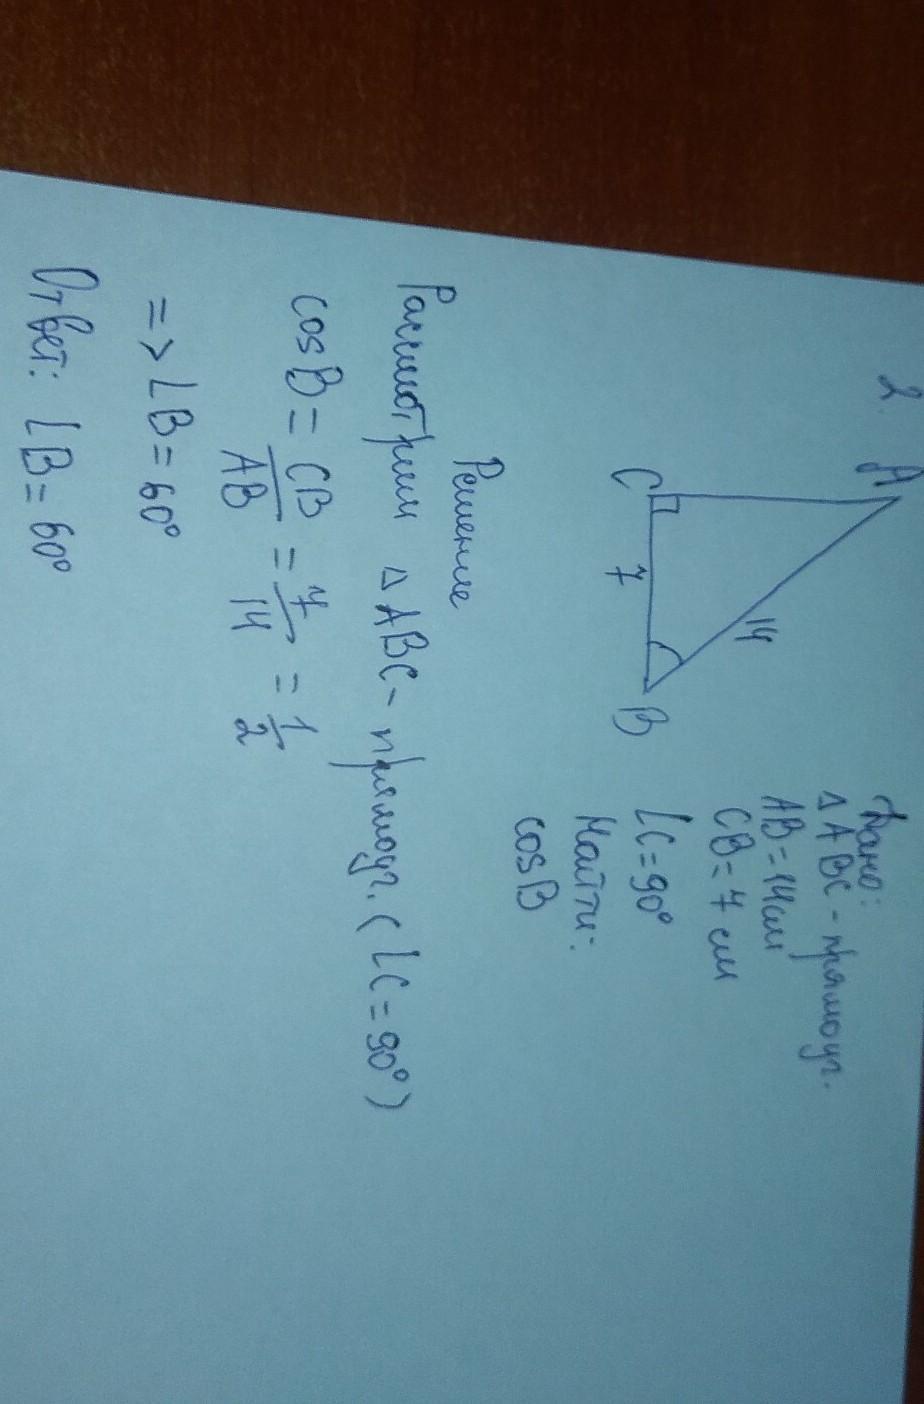 2.
A
14
C
7
B
Дано:
△ABC - прямоуг.
AB = 14см
CB = 7 см
∠C = 90°
Найти:
cosB
Решение
Рассмотрим △ABC - прямоуг. (∠C = 90°)
cosB = CB/AB = 7/14 = 1/2
=> ∠B = 60°
Ответ: ∠B = 60°